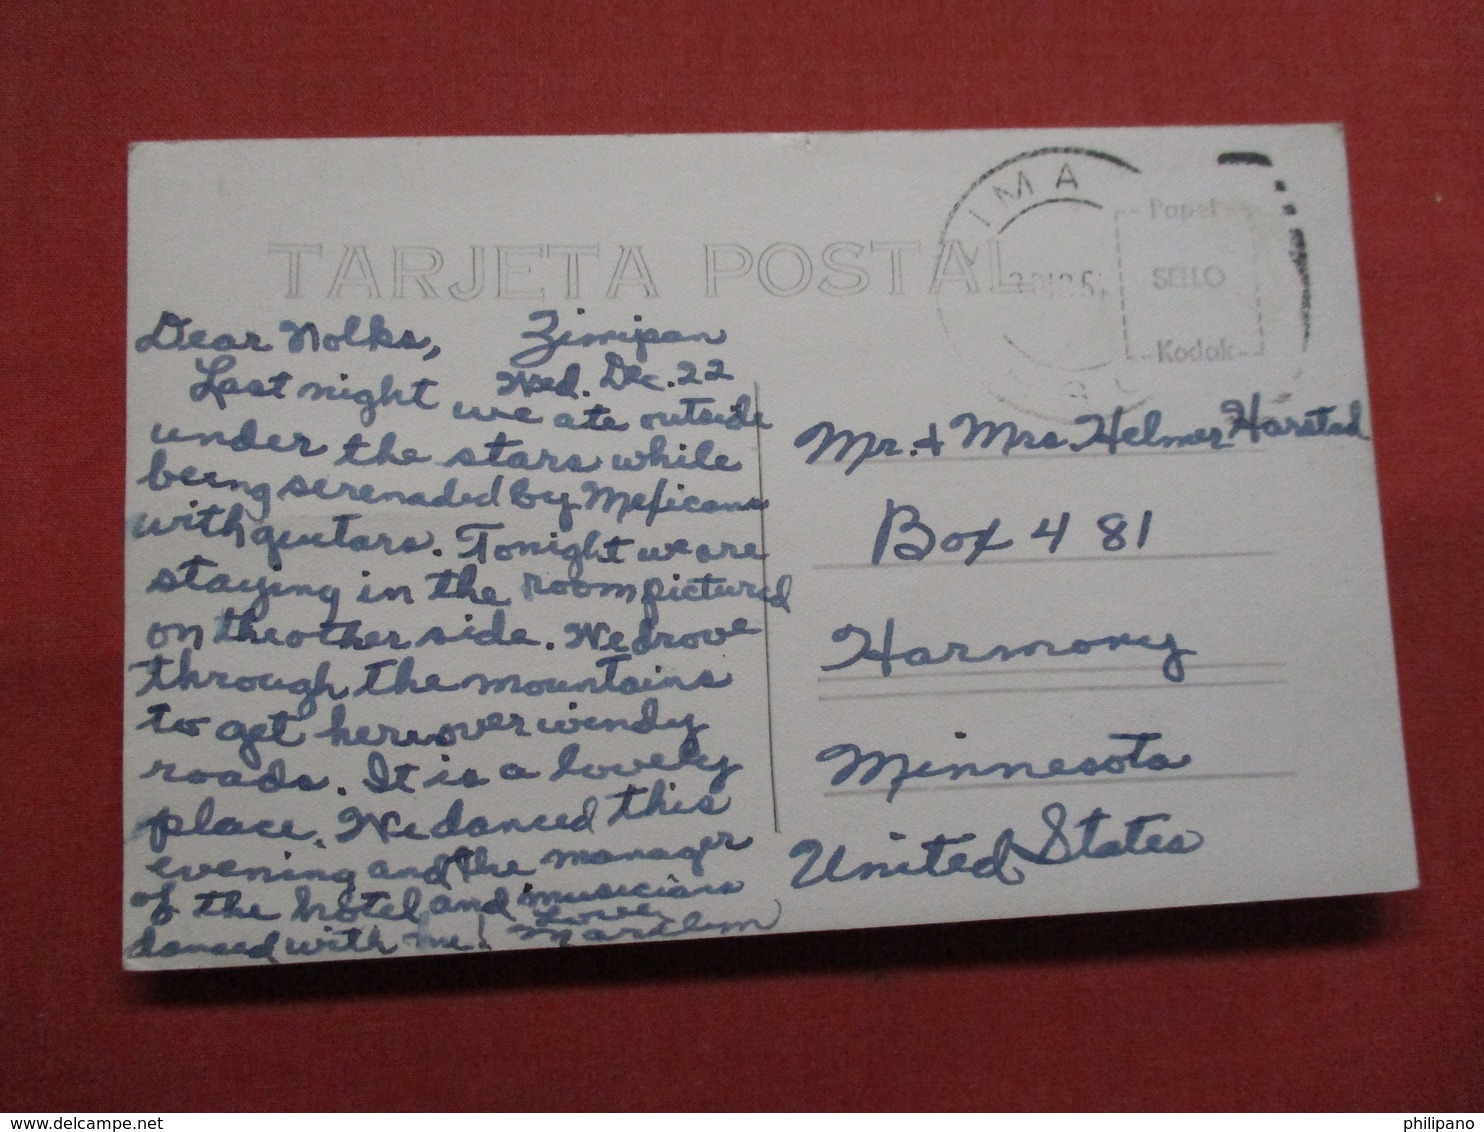 TARJETA POSTAL
IMA
Papel
SELLO
Kodak
Dear Nolks, Zimipan
Wed. Dec. 22
Last night we ate outside
under the stars while
being serenaded by Mexicans
with guitars. Tonight we are
staying in the room pictured
on the other side. We drove
through the mountains
to get here over windy
roads. It is a lovely
place. We danced this
evening and the manager
of the hotel and musicians
danced with me! Love,
Mr. & Mrs. Helmer Harstad
Box 481
Harmony
Minnesota
United States
philipano